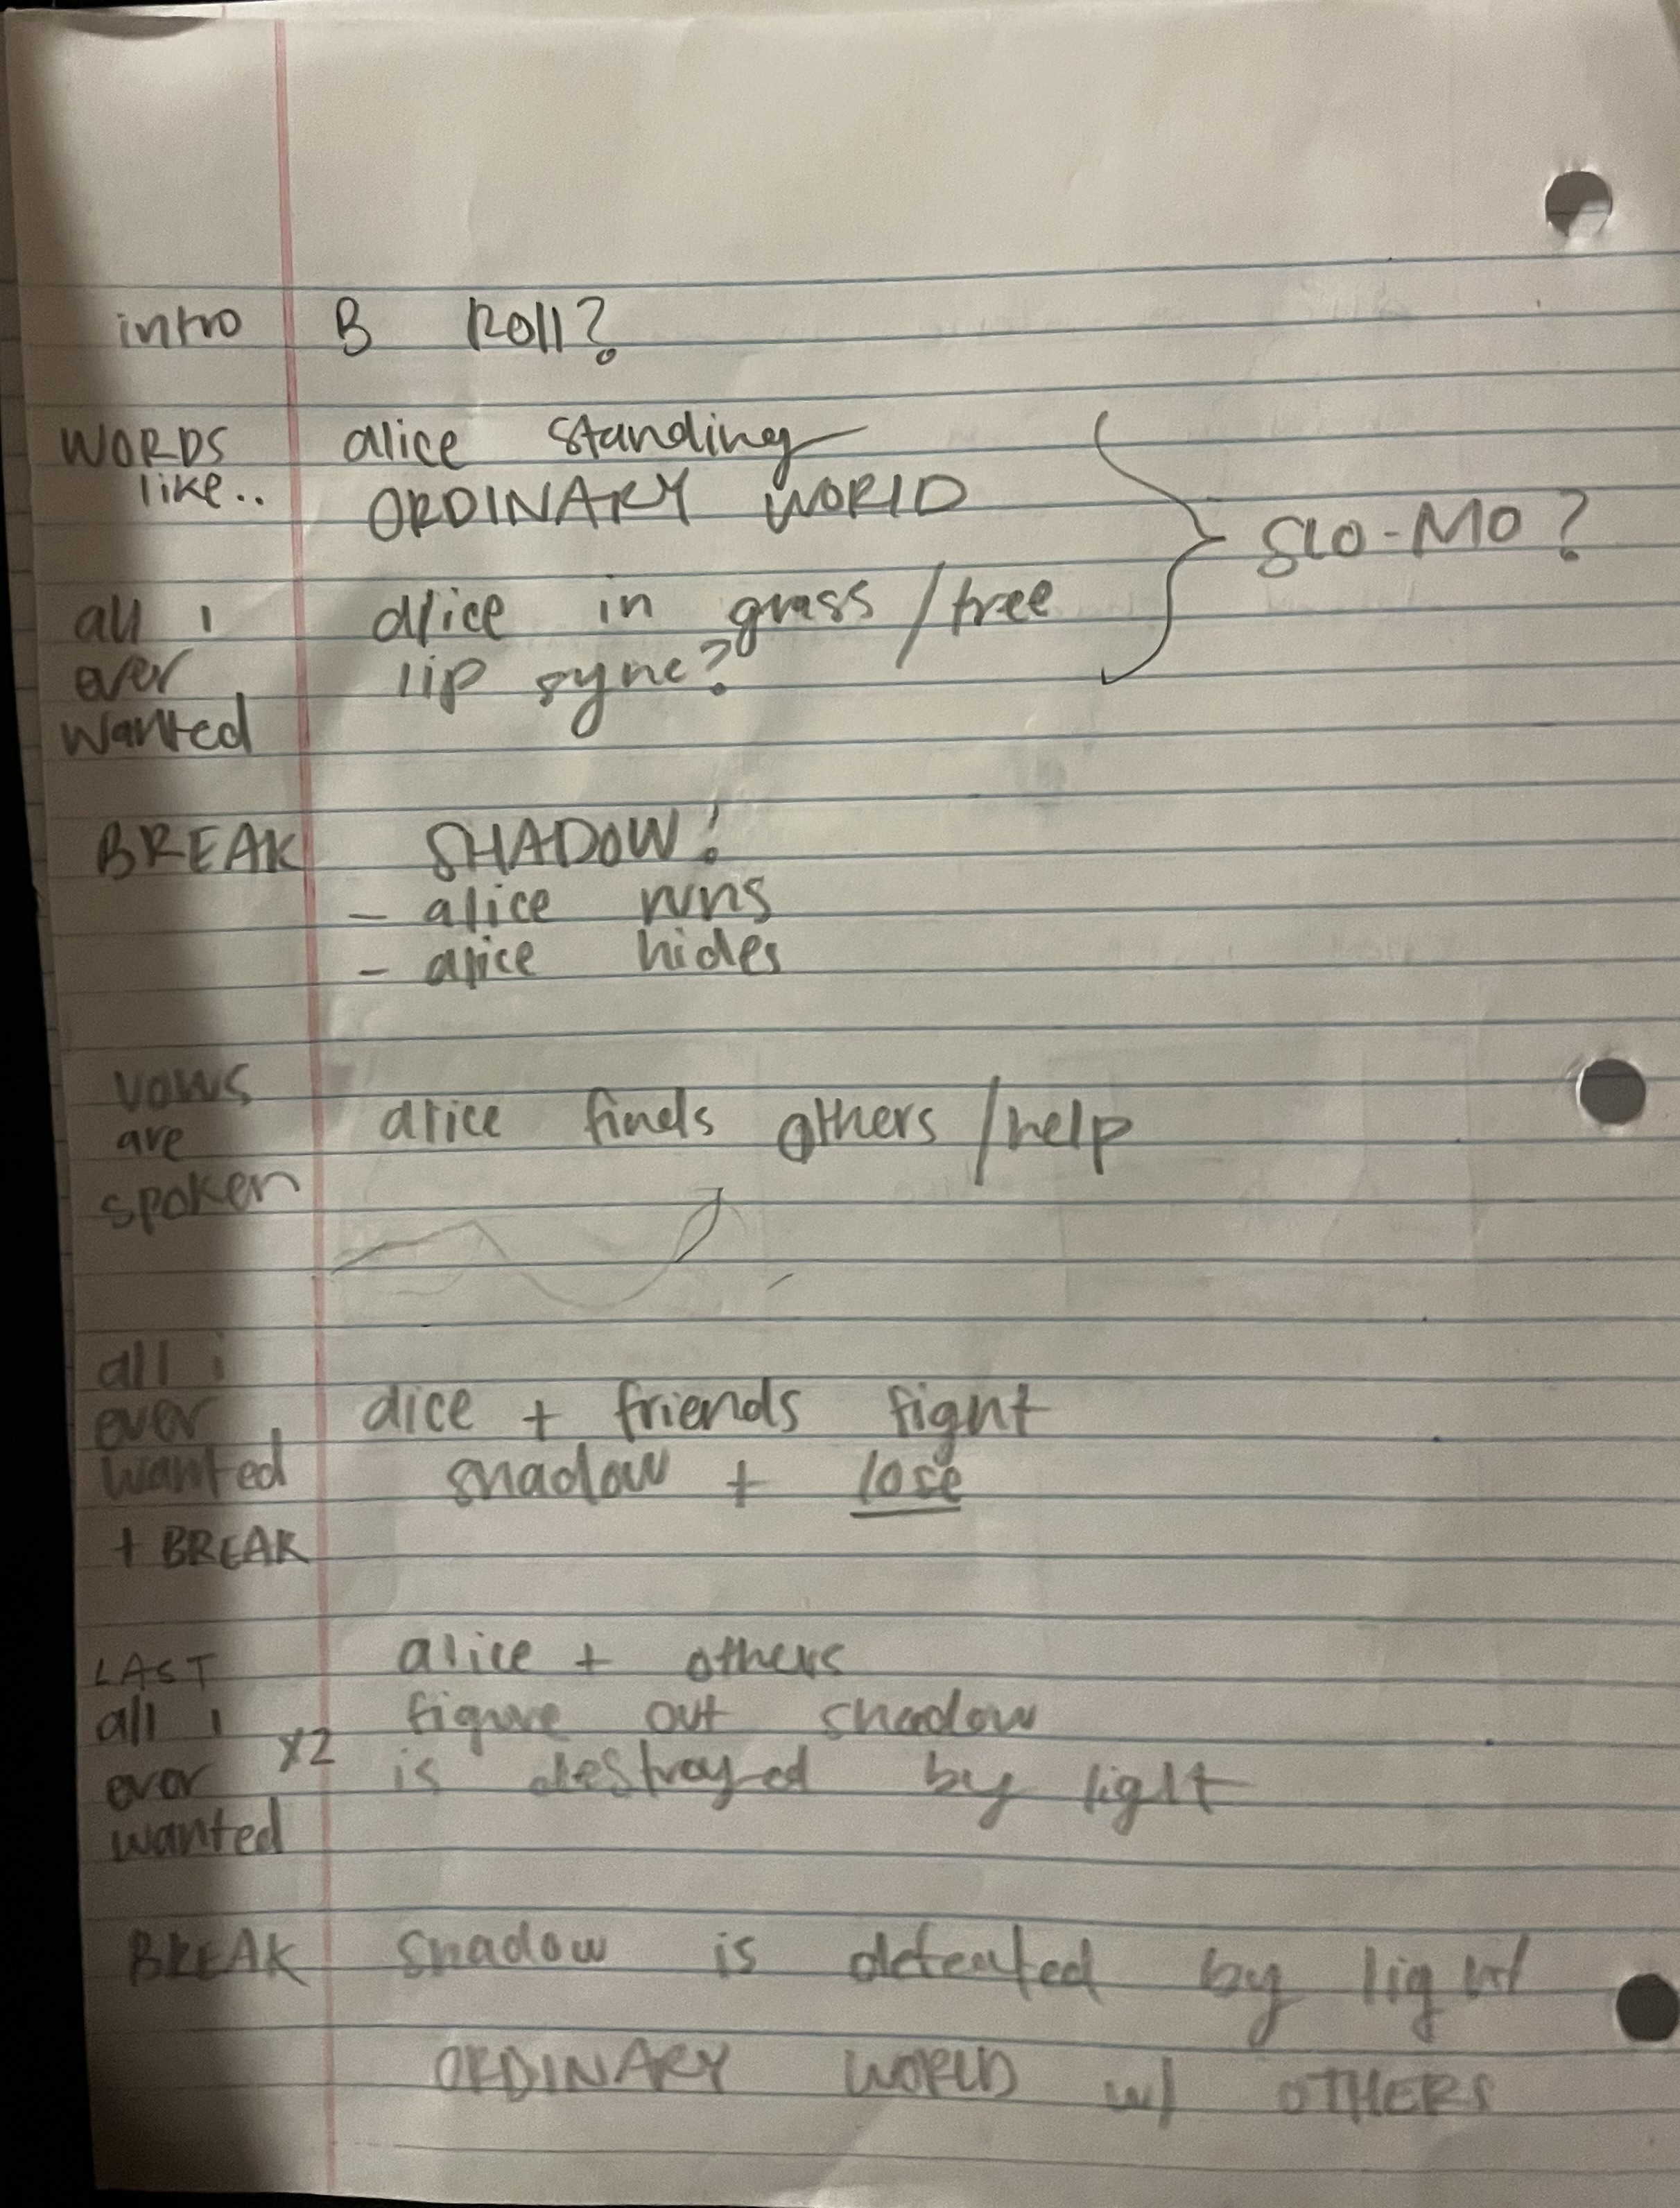 intro B Roll?
WORDS alice standing
like.. ORDINARY WORLD
SLO-MO?
all i alice in grass/tree
ever lip sync?
wanted
BREAK SHADOW!
- alice runs
- alice hides
vows
are alice finds others/help
spoken
all i
ever alice + friends fight
wanted shadow + lose
+ BREAK
LAST alice + others
all i figure out shadow
ever x2 is destroyed by light
wanted
BREAK shadow is defeated by light
ORDINARY WORLD w/ OTHERS